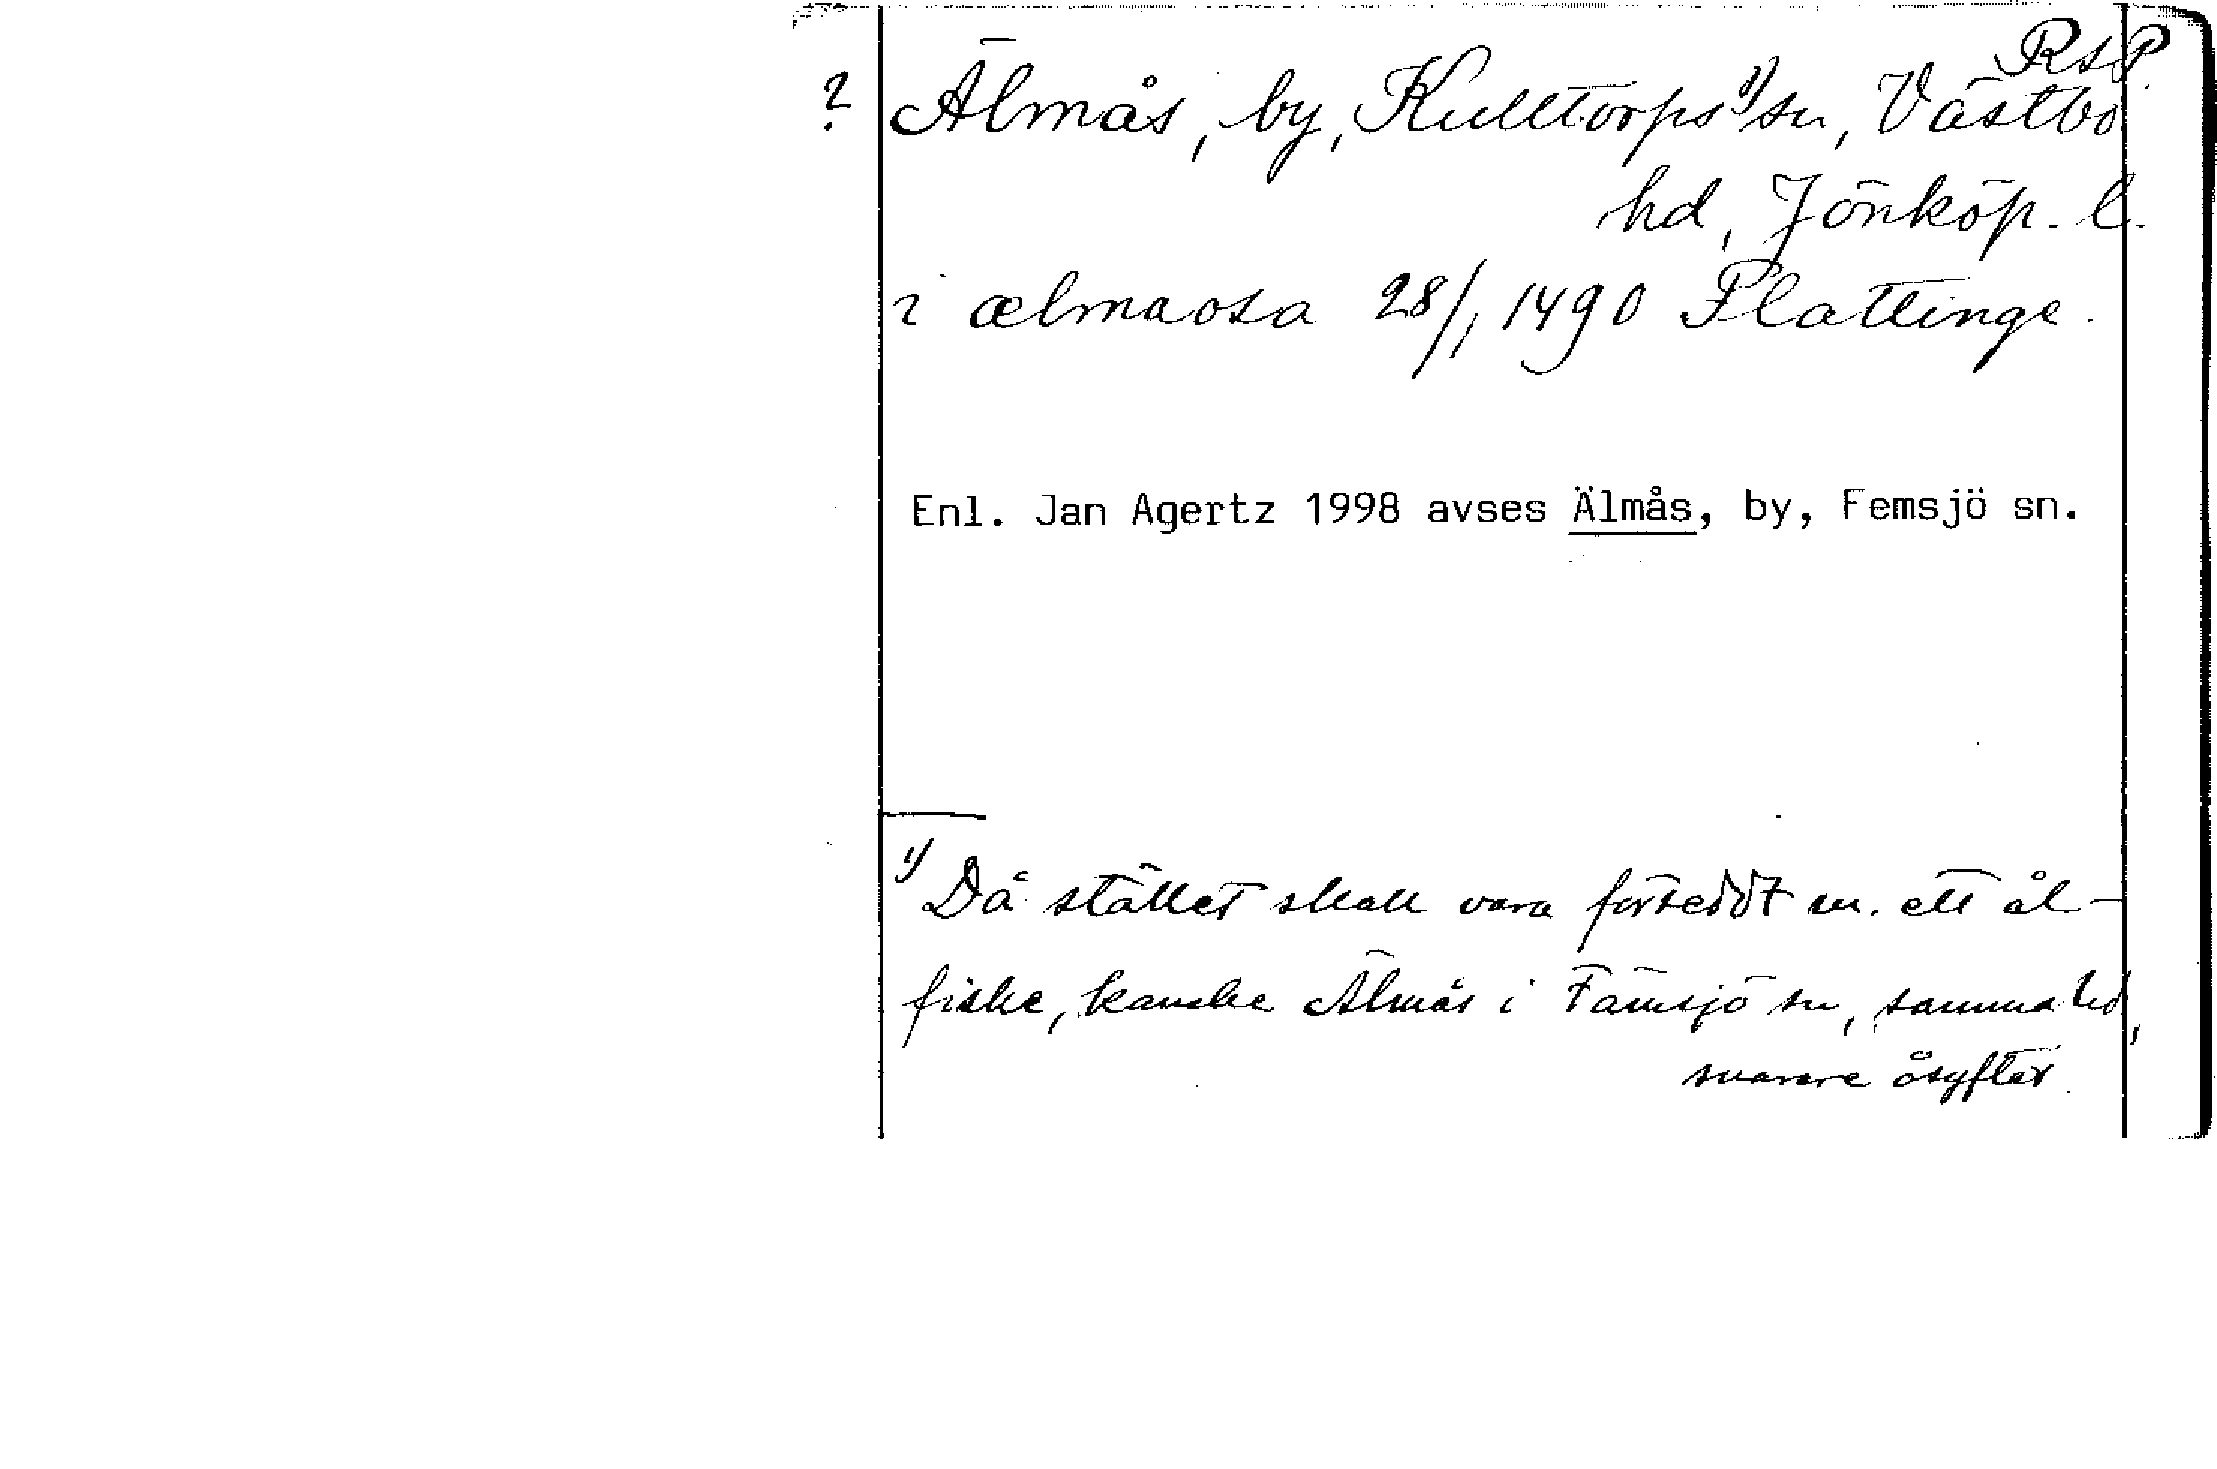 RsP
? Älmås, by, Kulltorps¹⁾ sn, Västbo
hd, Jönköp. l.
i ælmaosa 28/1 1490 Flattinge.
Enl. Jan Agertz 1998 avses Älmås, by, Femsjö sn.
¹⁾ Då stället skall vara försedt m. ett ål-
fiske, kanske Älmås i Fämsjö sn, samma hd,
snarare åsyftas